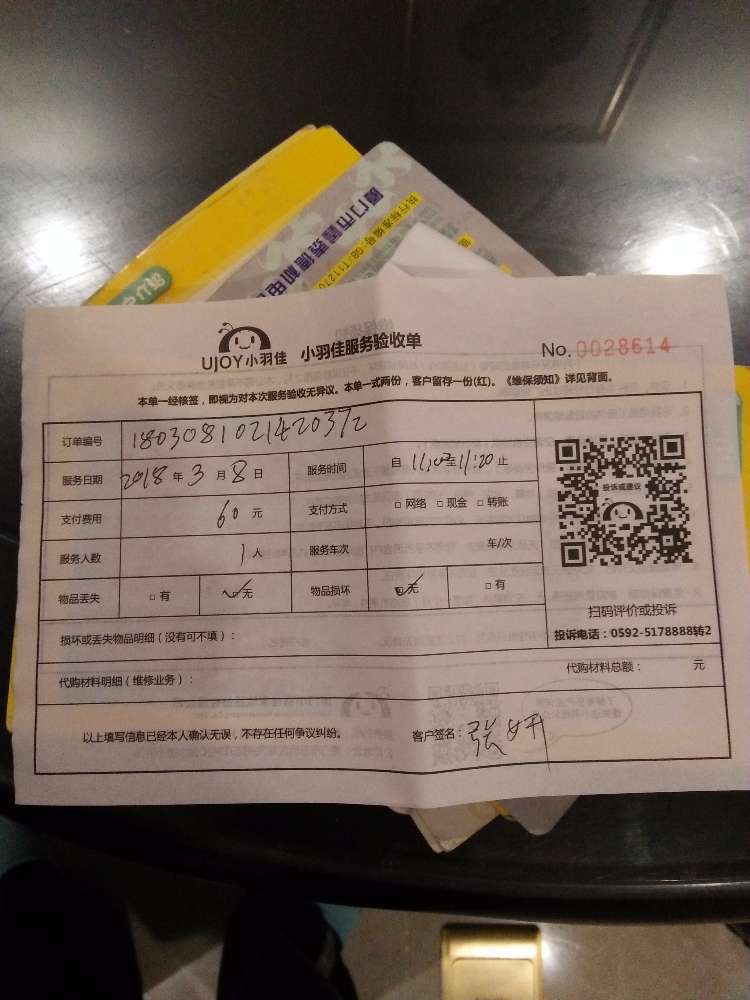 厦门市鑫泰德机电
执行标准编号:GB T1127
UJOY小羽佳 小羽佳服务验收单 No.0028614
本单一经核签，即视为对本次服务验收无异议。本单一式两份，客户留存一份(红)。《维保须知》详见背面。
订单编号 1803081021420372
服务日期 2018年3月8日 服务时间 自 至11:20止
支付费用 60元 支付方式 □网络 □现金 □转账
服务人数 1人 服务车次 车/次
物品丢失 □有 ☑无 物品损坏 ☑无 □有
损坏或丢失物品明细（没有可不填）：
代购材料明细（维修业务）： 代购材料总额： 元
以上填写信息已经本人确认无误，不存在任何争议纠纷。 客户签名：张妍
投诉或建议
扫码评价或投诉
投诉电话：0592-5178888转2